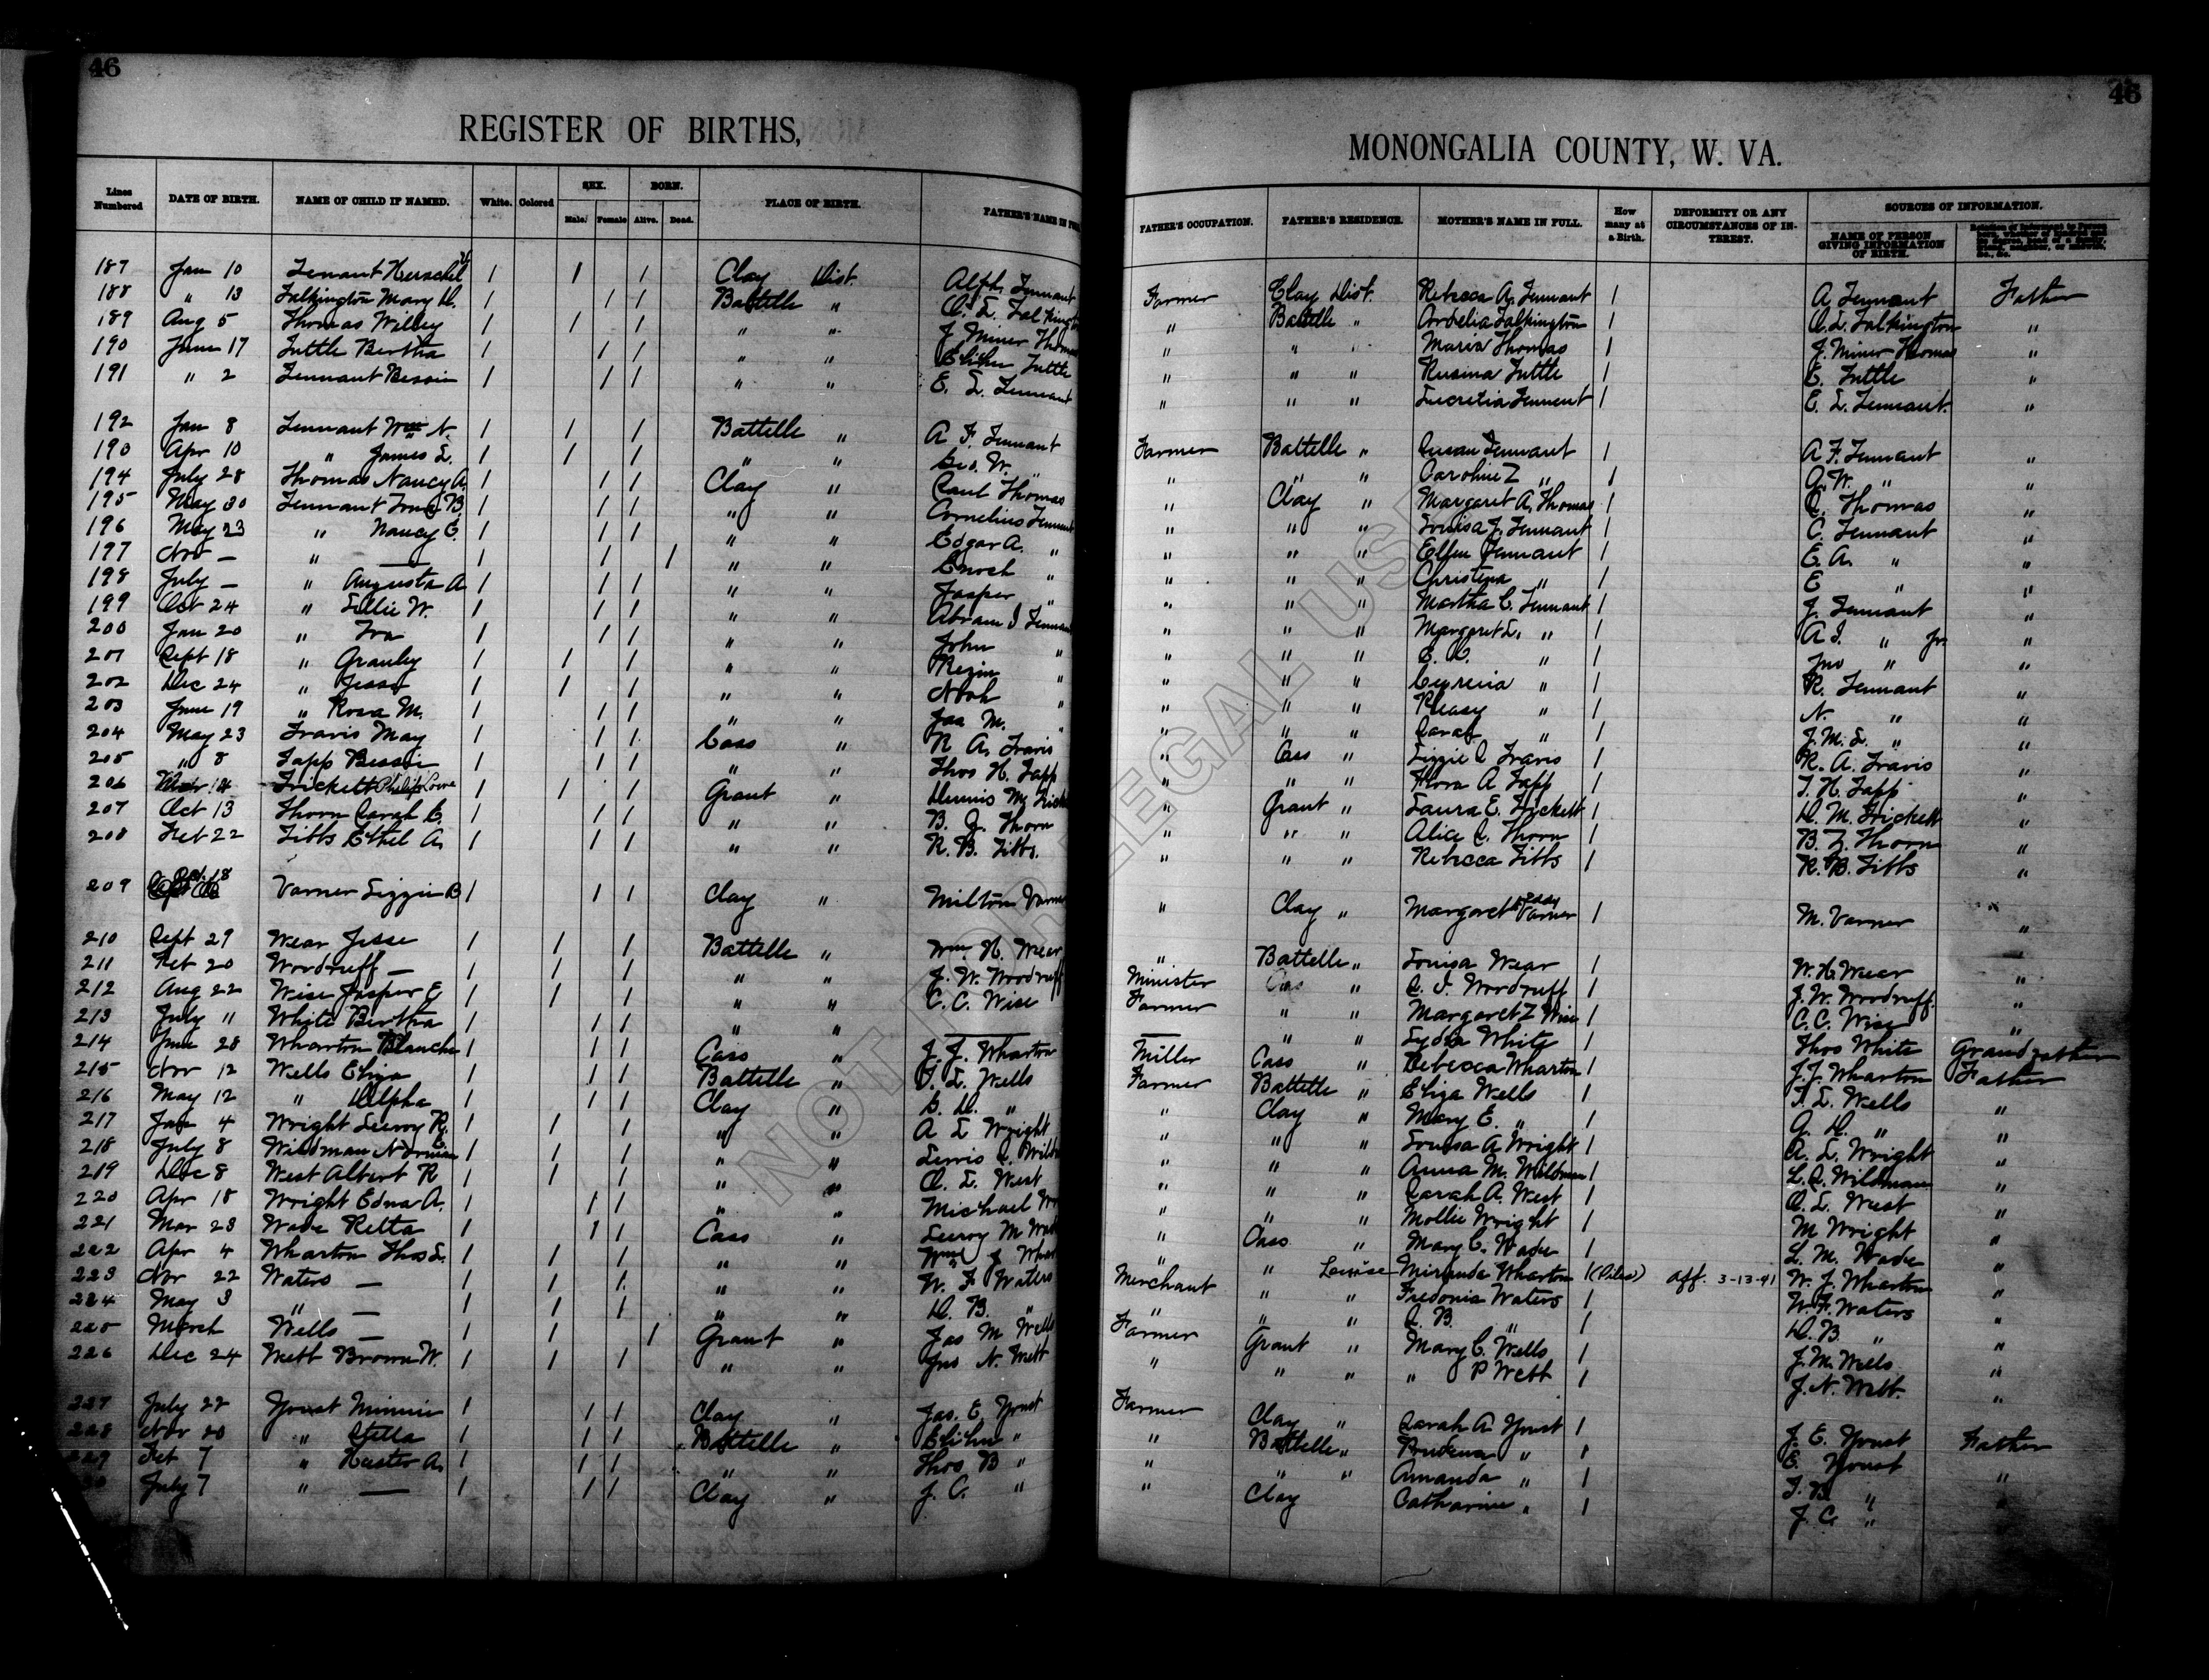 46
46
REGISTER OF BIRTHS,
MONONGALIA COUNTY, W. VA.
Lines Numbered DATE OF BIRTH. NAME OF CHILD IF NAMED. White. Colored SEX. Male. Female BORN. Alive. Dead. PLACE OF BIRTH. FATHER'S NAME IN FULL FATHER'S OCCUPATION. FATHER'S RESIDENCE. MOTHER'S NAME IN FULL. How many at a Birth. DEFORMITY OR ANY CIRCUMSTANCES OF INTEREST. SOURCES OF INFORMATION. NAME OF PERSON GIVING INFORMATION OF BIRTH.
187 Jan 10 Tennant Herschel 1 1 1 Clay Dist. Alph. Tennant Farmer Clay Dist. Rebecca A. Tennant 1 A Tennant Father
188 " 13 Talkington Mary D. 1 1 1 Battelle " O. L. Talkington " Battelle " Cordelia Talkington 1 O. L. Talkington "
189 Aug 5 Thomas Willey 1 1 1 " " J. Miner Thomas " " " Maria Thomas 1 J. Miner Thomas "
190 June 17 Tuttle Bertha 1 1 1 " " Elihu Tuttle " " " Rusina Tuttle 1 E. Tuttle "
191 " 2 Tennant Bessie 1 1 1 " " E. L. Tennant " " " Lucretia Tennent 1 E. L. Tennant "
192 Jan 8 Tennant Wm N. 1 1 1 Battelle " A. F. Tennant Farmer Battelle " Susan Tennant 1 A F. Tennant "
190 Apr 10 " James L. 1 1 1 " " Geo. W. " " " " Caroline Z " 1 G. W. " "
194 July 28 Thomas Nancy A. 1 1 1 Clay " Saul Thomas " Clay " Margaret A. Thomas 1 S. Thomas "
195 May 30 Tennant B. 1 1 1 " " Cornelius Tennant " " " Louisa J. Tennant 1 C. Tennant "
196 May 23 " Nancy E. 1 1 1 " " Edgar A. " " " " Ellen Tennant 1 E. A. " "
197 Nov — " — 1 1 1 " " Enoch " " " " Christena " 1 E " "
198 July — " Augusta A 1 1 1 " " Jasper " " " " Martha C. Tennant 1 J. Tennant "
199 Oct 24 " Lillie W. 1 1 1 " " Abram I Tennant " " " Margaret L. " 1 A I. " Jr. "
200 Jan 20 " Iva 1 1 1 " " John " " " " E. C. " 1 Jno " "
201 Sept 18 " Granley 1 1 1 " " Rezin " " " " Cyrena " 1 R. Tennant "
202 Dec 24 " Jesse 1 1 1 " " Noah " " " " Pleasy " 1 N. " "
203 June 19 " Rosa M. 1 1 1 " " Jas M. " " " " Sarah " 1 J. M. L. " "
204 May 23 Travis May 1 1 1 Cass " R A. Travis " Cass " Lizzie S Travis 1 R. A. Travis "
205 " 8 Tapp Bessie 1 1 1 " " Thos H. Tapp " " " Flora A Tapp 1 T. H. Tapp "
206 Mar 14 Trickett Philip Lowe 1 1 1 Grant " Dennis M. " Grant " Laura E. Trickett 1 D. M. Trickett "
207 Oct 13 Thorn Sarah E. 1 1 1 " " B. Z. Thorn " " " Alice S. Thorn 1 B. Z. Thorn "
208 Feb 22 Tibbs Ethel A. 1 1 1 " " R. B. Tibbs. " " " Rebecca Tibbs 1 R. B. Tibbs "
209 Oct. 18 Varner Lizzie B 1 1 1 Clay " Milton Varner " Clay " Margaret Eddy Varner 1 M. Varner "
210 Sept 29 Wear Jesse 1 1 1 Battelle " Wm. H. Wear " Battelle " Louisa Wear 1 W. H. Wear "
211 Feb 20 Woodruff — 1 1 1 " " J. W. Woodruff Minister Cass " S. I. Woodruff 1 J. W. Woodruff. "
212 Aug 22 Wise Jasper E 1 1 1 " " C. C. Wise Farmer " " Margaret Z Wise 1 C. C. Wise "
213 July 11 White Bertha 1 1 1 " " — — " " Lydia White 1 Thos White Grandfather
214 June 28 Wharton Blanche 1 1 1 Cass " J. J. Wharton Miller Cass " Rebecca Wharton 1 J. J. Wharton Father
215 Nov 12 Wells Eliza 1 1 1 Battelle " T. L. Wells Farmer Battelle " Eliza Wells 1 T. L. Wells "
216 May 12 " Delpha 1 1 1 Clay " G. D. " " Clay " Mary E. " 1 G. D. " "
217 Jan 4 Wright Leroy R. 1 1 1 " " A L Wright " " " Louisa A Wright 1 A. L. Wright "
218 July 8 Wildman E. 1 1 1 " " Lewis S. " " " Anna M. Wildman 1 L. S. Wildman "
219 Dec 8 West Albert R 1 1 1 " " O. L. West " " " Sarah A. West 1 O. L. West "
220 Apr 18 Wright Edna A. 1 1 1 " " Michael " " " Mollie Wright 1 M Wright "
221 Mar 28 Wade Retta 1 1 1 Cass " Leroy M " Cass " Mary C. Wade 1 L. M. Wade "
222 Apr 4 Wharton Thos L. 1 1 1 " " Wm J " " Louise Miranda Wharton 1 (Piles) aff. 3-13-41 W. J. Wharton "
223 Nov 22 Waters — 1 1 1 " " W. F Waters Merchant " " Fredonia Waters 1 W. F. Waters "
224 May 3 " — 1 1 1 " " D. B. " " " " S. B. " 1 D. B. " "
225 March Wells — 1 1 1 Grant " Jas M Wells Farmer Grant " Mary C. Wells 1 J. M. Wells "
226 Dec 24 Webb Brown W. 1 1 1 " " Jno N. Webb " " " " P Webb 1 J. N. Webb. "
227 July 22 Youst Minnie 1 1 1 Clay " Jas. E Youst Farmer Clay " Sarah A Youst 1 J. E. Youst Father
228 Nov 20 " Stella 1 1 1 Battelle " Elihu " " Battelle " " 1 E. Youst "
229 Feb 7 " Hester A. 1 1 1 " " Thos B " " " " Amanda " 1 T. B "
July 7 " — 1 1 1 Clay " J. C. " " Clay Catharine " 1 J. C. "
NOT FOR LEGAL USE